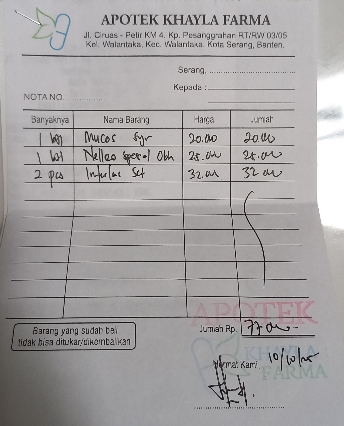 APOTEK KHAYLA FARMA
Jl. Ciruas - Petir KM 4. Kp. Pesanggrahan RT/RW 03/05
Kel. Walantaka, Kec. Walantaka. Kota Serang, Banten.
Serang, ..............................
Kepada : ..............................
NOTA NO. ..............
Banyaknya Nama Barang Harga Jumlah
1 Mucos Syr 20.00 20.00
1 25.00 25.00
2 pcs Set 32.00 32.00
APOTEK
Barang yang sudah beli
tidak bisa ditukar/dikembalikan
Jumlah Rp. 77.00
Hormat Kami 10/10/25
KHAYLA
FARMA